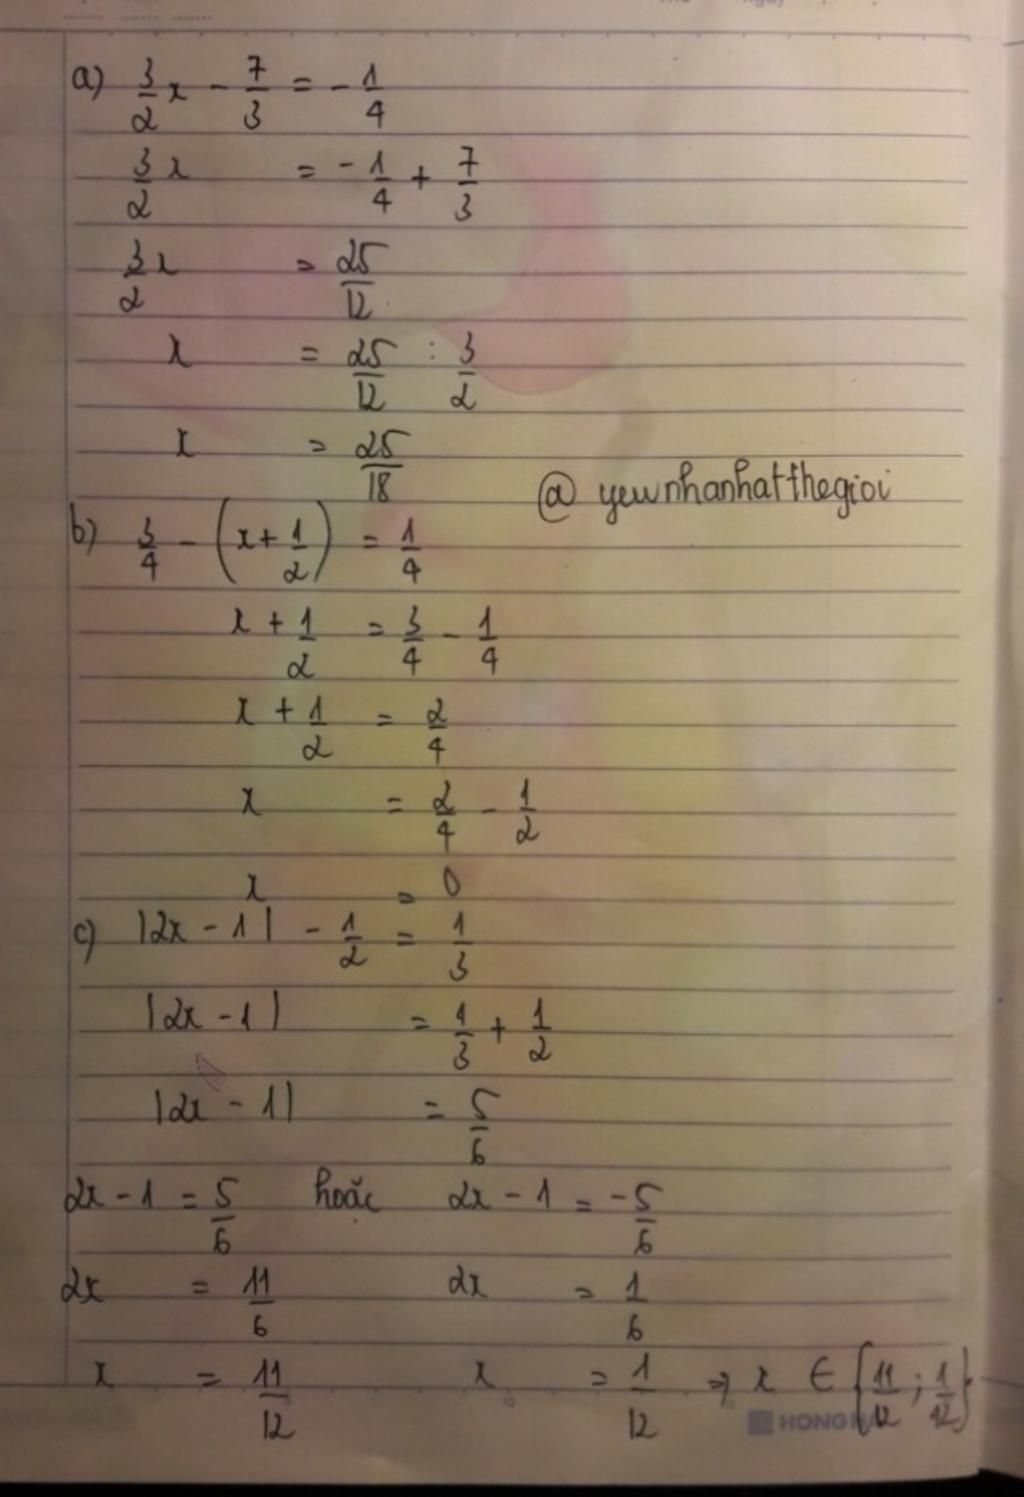 a) 3/2 x - 7/3 = - 1/4
3/2 x = - 1/4 + 7/3
3x/2 = 25/12
x = 25/12 : 3/2
x = 25/18
@ yewnhanhatthegioi
b) 3/4 - (x + 1/2) = 1/4
x + 1/2 = 3/4 - 1/4
x + 1/2 = 2/4
x = 2/4 - 1/2
x = 0
c) |2x - 1| - 1/2 = 1/3
|2x - 1| = 1/3 + 1/2
|2x - 1| = 5/6
2x - 1 = 5/6 hoặc 2x - 1 = -5/6
2x = 11/6 2x = 1/6
x = 11/12 x = 1/12 => x ∈ {11/12 ; 1/12}
HONG HA